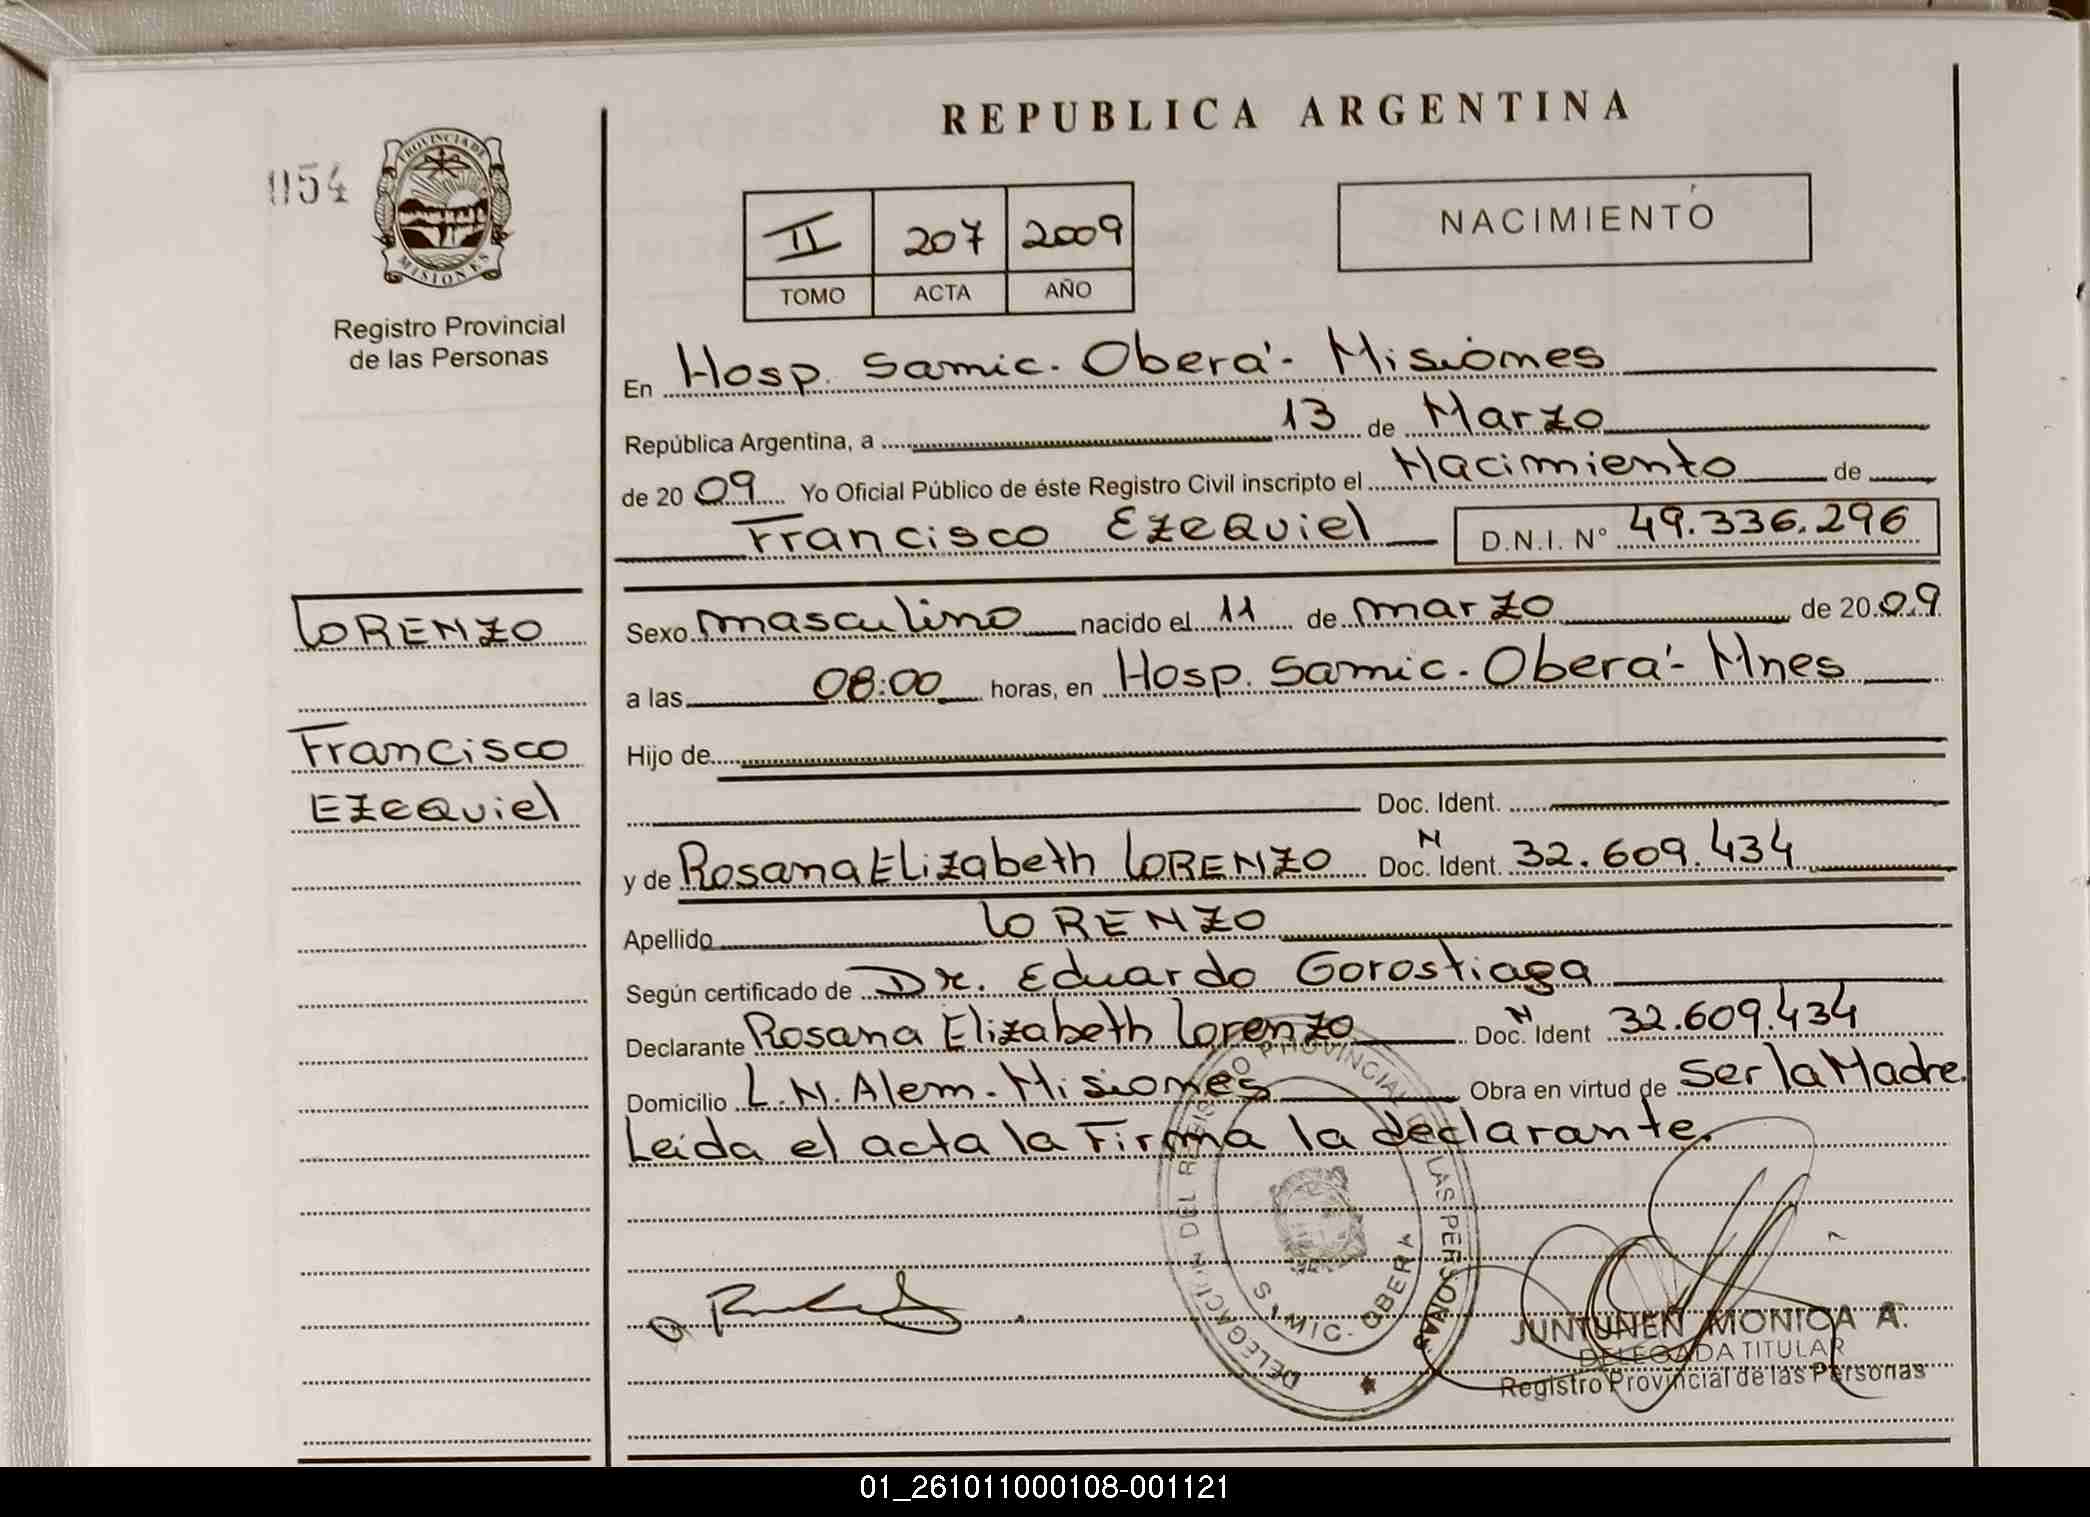 REPUBLICA ARGENTINA
054
PROVINCIA DE
MISIONES
Registro Provincial
de las Personas
II 207 2009
TOMO ACTA AÑO
NACIMIENTO
En Hosp. Samic. Oberá - Misiones
República Argentina, a 13 de Marzo
de 20 09 Yo Oficial Público de éste Registro Civil inscripto el Nacimiento de
Francisco Ezequiel D.N.I. N° 49.336.296
LORENZO
Francisco
Ezequiel
Sexo masculino nacido el 11 de marzo de 20 09
a las 08:00 horas, en Hosp. Samic. Oberá - Mnes
Hijo de
Doc. Ident.
y de Rosana Elizabeth LORENZO Doc. N Ident. 32.609.434
Apellido LORENZO
Según certificado de Dr. Eduardo Gorostiaga
Declarante Rosana Elizabeth Lorenzo Doc. N Ident 32.609.434
Domicilio L.N. Alem - Misiones Obra en virtud de Ser la Madre.
Leída el acta la Firma la declarante.
DELEGACION DEL REGISTRO PROVINCIAL DE LAS PERSONAS
SAMIC - OBERA
JUNTUNEN MONICA A.
DELEGADA TITULAR
Registro Provincial de las Personas
01_261011000108-001121